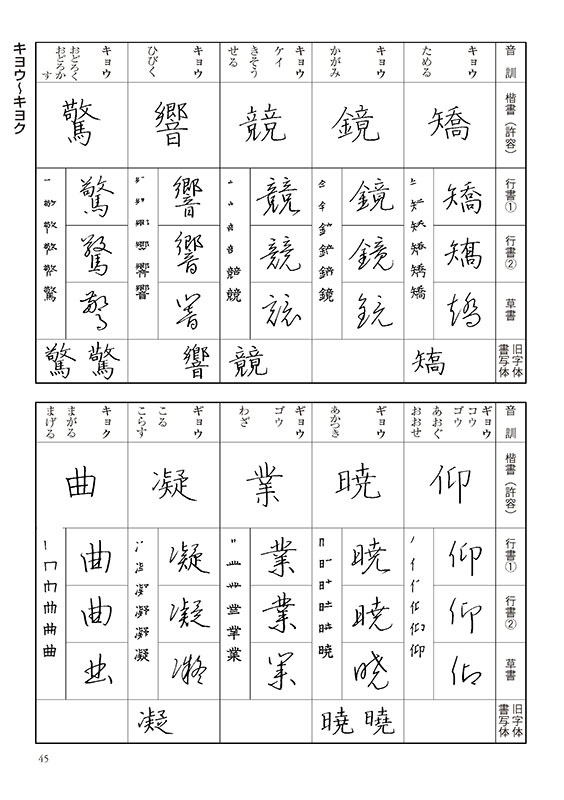 キヨウ〜キヨク
音訓
楷書（許容）
行書①
行書②
草書
旧字体
書写体
キョウ
ためる
矯
矯
矯
矯
矯
キョウ
かがみ
鏡
鏡
鏡
鏡
キョウ
ケイ
きそう
せる
競
競
競
競
競
キョウ
ひびく
響
響
響
響
響
キョウ
おどろく
おどろか
す
驚
驚
驚
驚
驚 驚
音訓
楷書（許容）
行書①
行書②
草書
旧字体
書写体
ギョウ
コウ
ゴウ
あおぐ
おおせ
仰
仰
仰
仰
ギョウ
あかつき
暁
暁
暁
暁
曉 曉
ギョウ
ゴウ
わざ
業
業
業
業
ギョウ
こる
こらす
凝
凝
凝
凝
凝
キョク
まがる
まげる
曲
曲
曲
曲
45